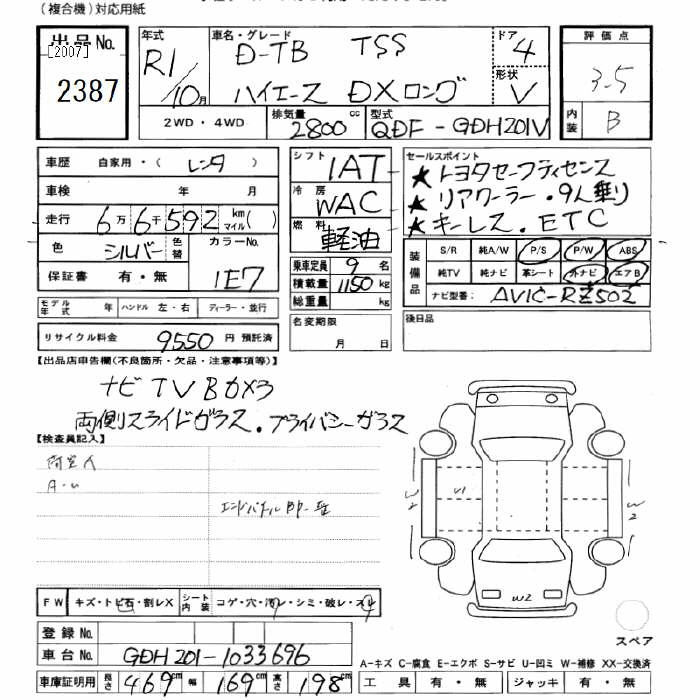 (複合機)対応用紙
出品No.
[2007]
2387
年式 R1/10月
車名・グレード D-TB TSS
ハイエース DXロング
ドア 4
形状 V
評価点
3.5
内装 B
2WD・4WD 排気量 2800 cc 型式 QDF-GDH201V
車歴 自家用・(レンタ)
車検 年 月
走行 6万6千592 km マイル( )
色 シルバー 色替 カラーNo. 1E7
保証書 有・無
モデル年式 年 ハンドル 左・右 ディーラー・並行
リサイクル料金 9550 円 預託済
シフト 1AT
冷房 WAC
燃料 軽油
乗車定員 9 名
積載量 1150 kg
総重量 kg
名変期限
月 日
セールスポイント
★トヨタセーフティセンス
★リアクーラー・9人乗り
★キーレス.ETC
装備品
S/R 純A/W P/S P/W ABS
純TV 純ナビ 革シート 外ナビ エアB
ナビ型番: AVIC-RZ502
後日品
【出品店申告欄(不良箇所・欠品・注意事項等)】
ナビTV Bカメラ
両側スライドガラス.プライバシーガラス
【検査員記入】
W2 U1 W2
W2
FW キズ・トビ石・割レX シート内装 コゲ・穴・汚レ・シミ・破レ・スレ
登録No.
車台No. GDH201-1033696
車庫証明用 長さ 469cm 幅 169cm 高さ 198cm
スペア
A-キズ C-腐食 E-エクボ S-サビ U-凹ミ W-補修 XX-交換済
工具 有・無 ジャッキ 有・無